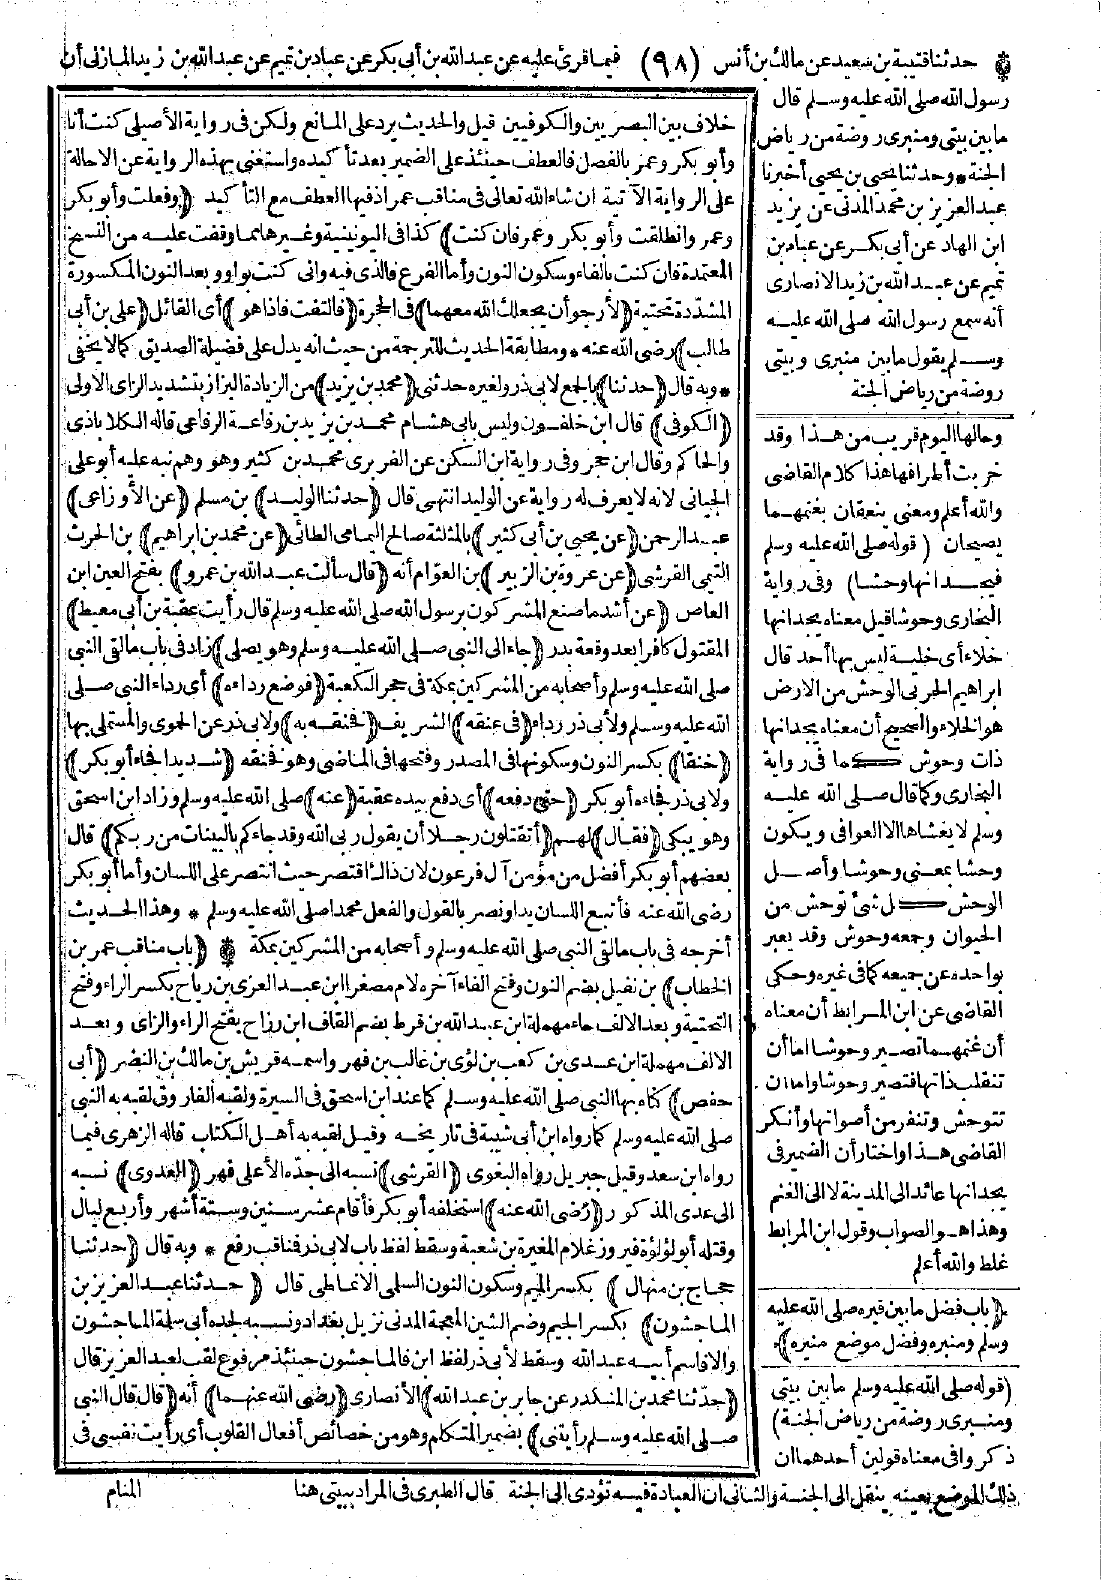 * حدثنا قتيبة بن سعيد عن مالك بن أنس (٩٨) فيما قرئ عليه عن عبد الله بن أبي بكر عن عباد بن تميم عن عبد الله بن زيد المازني أن
رسول الله صلى الله عليه وسلم قال
ما بين بيتي ومنبري روضة من رياض
الجنة * وحدثنا يحيى بن يحيى أخبرنا
عبد العزيز بن محمد المدني عن يزيد
ابن الهاد عن أبي بكر عن عباد بن
تميم عن عبد الله بن زيد الانصاري
أنه سمع رسول الله صلى الله عليه
وسلم يقول ما بين منبري وبيتي
روضة من رياض الجنة
وحالها اليوم قريب من هذا وقد
خربت أطرافها هذا كلام القاضي
والله أعلم ومعنى ينعقان بغنمهما
يصيحان (قوله صلى الله عليه وسلم
فيجدانها وحشا) وفي رواية
البخاري وحوشا قيل معناه يجدانها
خلاء أي خلية ليس بها أحد قال
ابراهيم الحربي الوحش من الارض
هو الخلاء والصحيح أن معناه يجدانها
ذات وحوش كما في رواية
البخاري وكما قال صلى الله عليه
وسلم لا يغشاها الا العوافي ويكون
وحشا بمعنى وحوشا وأصل
الوحش كل شئ توحش من
الحيوان وجمعه وحوش وقد يعبر
بواحده عن جميعه كما في غيره وحكى
القاضي عن ابن المرابط أن معناه
أن غنمهما تصير وحوشا اما أن
تنقلب ذاتها فتصير وحوشا واما ان
تتوحش وتنفر من أصواتها وأنكر
القاضي هذا واختار أن الضمير في
يجدانها عائد الى المدينة لا الى الغنم
وهذا هو الصواب وقول ابن المرابط
غلط والله أعلم
(باب فضل ما بين قبره صلى الله عليه
وسلم ومنبره وفضل موضع منبره)
(قوله صلى الله عليه وسلم ما بين بيتي
ومنبري روضة من رياض الجنة)
ذكروا في معناه قولين أحدهما ان
ذلك الموضع بعينه ينقل الى الجنة والثاني ان العبادة فيه تؤدي الى الجنة قال الطبري في المراد ببيتي هنا
خلاف بين البصريين والكوفيين قيل والحديث يرد على المانع ولكن في رواية الأصيلي كنت أنا
وأبو بكر وعمر بالفصل فالعطف حينئذ على الضمير بعد تأكيده واستغنى بهذه الرواية عن الاحالة
على الرواية الآتية ان شاء الله تعالى في مناقب عمر اذ فيها العطف مع التأكيد (وفعلت وأبو بكر
وعمر وانطلقت وأبو بكر وعمر فان كنت) كذا في اليونينية وغيرها مما وقفت عليه من النسخ
المعتمدة فان كنت بالفاء وسكون النون وأما الفرع فالذي فيه واني كنت بواو وبعد النون المكسورة
المشددة تحتية (لأرجو أن يجعلك الله معهما) في الحجرة (فالتفت فاذا هو) أي القائل (علي بن أبي
طالب) رضي الله عنه * ومطابقة الحديث للترجمة من حيث انه يدل على فضيلة الصديق كما لا يخفى
* وبه قال (حدثنا) بالجمع لابي ذر ولغيره حدثني (محمد بن يزيد) من الزيادة البزاز بتشديد الزاي الاولى
(الكوفي) قال ابن خلفون وليس بابي هشام محمد بن يزيد بن رفاعة الرفاعي قاله الكلاباذي
والحاكم وقال ابن حجر وفي رواية ابن السكن عن الفربري محمد بن كثير وهو وهم نبه عليه أبو علي
الجياني لانه لا يعرف له رواية عن الوليد انتهى قال (حدثنا الوليد) بن مسلم (عن الأوزاعي)
عبد الرحمن (عن يحيى بن أبي كثير) بالمثلثة صالح اليمامي الطائي (عن محمد بن ابراهيم) بن الحرث
التيمي القرشي (عن عروة بن الزبير) بن العوام أنه (قال سألت عبد الله بن عمرو) بفتح العين ابن
العاص (عن أشد ما صنع المشركون برسول الله صلى الله عليه وسلم قال رأيت عقبة بن أبي معيط)
المقتول كافرا بعد وقعة بدر (جاء الى النبي صلى الله عليه وسلم وهو يصلي) زاد في باب مالقي النبي
صلى الله عليه وسلم وأصحابه من المشركين بمكة في حجر الكعبة (فوضع رداءه) أي رداء النبي صلى
الله عليه وسلم ولأبي ذر رداء (في عنقه) الشريف (فخنقه به) ولابي ذر عن الحموي والمستملي بها
(خنقا) بكسر النون وسكونها في المصدر وفتحها في الماضي وهو فخنقه (شديدا فجاء أبو بكر)
ولابي ذر فجاءه أبو بكر (حتى دفعه) أي دفع بيده عقبة (عنه) صلى الله عليه وسلم وزاد ابن اسحق
وهو يبكي (فقال) لهم (أتقتلون رجلا أن يقول ربي الله وقد جاءكم بالبينات من ربكم) قال
بعضهم أبو بكر أفضل من مؤمن آل فرعون لان ذاك اقتصر حيث انتصر على اللسان وأما أبو بكر
رضي الله عنه فأتبع اللسان يدا ونصر بالقول والفعل محمدا صلى الله عليه وسلم * وهذا الحديث
أخرجه في باب مالقي النبي صلى الله عليه وسلم وأصحابه من المشركين بمكة * (باب مناقب عمر بن
الخطاب) بن نفيل بضم النون وفتح الفاء آخره لام مصغرا ابن عبد العزى بن رياح بكسر الراء وفتح
التحتية وبعد الالف حاء مهملة ابن عبد الله بن قرط بضم القاف ابن رزاح بفتح الراء والزاي وبعد
الالف مهملة ابن عدي بن كعب بن لؤي بن غالب بن فهر واسمه قريش بن مالك بن النضر (أبي
حفص) كناه بها النبي صلى الله عليه وسلم كما عند ابن اسحق في السيرة ولقبه الفاروق لقبه به النبي
صلى الله عليه وسلم كما رواه ابن أبي شيبة في تاريخه وقيل لقبه به أهل الكتاب قاله الزهري فيما
رواه ابن سعد وقيل جبريل رواه البغوي (القرشي) نسبه الى جده الأعلى فهر (العدوي) نسبه
الى عدي المذكور (رضي الله عنه) استخلفه أبو بكر فأقام عشر سنين وستة أشهر وأربع ليال
وقتله أبو لؤلؤة فيروز غلام المغيرة بن شعبة وسقط لفظ باب لابي ذر فمناقب رفع * وبه قال (حدثنا
حجاج بن منهال) بكسر الميم وسكون النون السلمي الانماطي قال (حدثنا عبد العزيز بن
الماجشون) بكسر الجيم وضم الشين المعجمة المدني نزيل بغداد ونسبه لجده أبي سلمة الماجشون
والا فاسم أبيه عبد الله وسقط لأبي ذر لفظ ابن فالماجشون حينئذ مرفوع لقب لعبد العزيز قال
(حدثنا محمد بن المنكدر عن جابر بن عبد الله) الأنصاري (رضي الله عنهما) أنه (قال قال النبي
صلى الله عليه وسلم رأيتني) بضمير المتكلم وهو من خصائص أفعال القلوب أي رأيت نفسي في
المنام